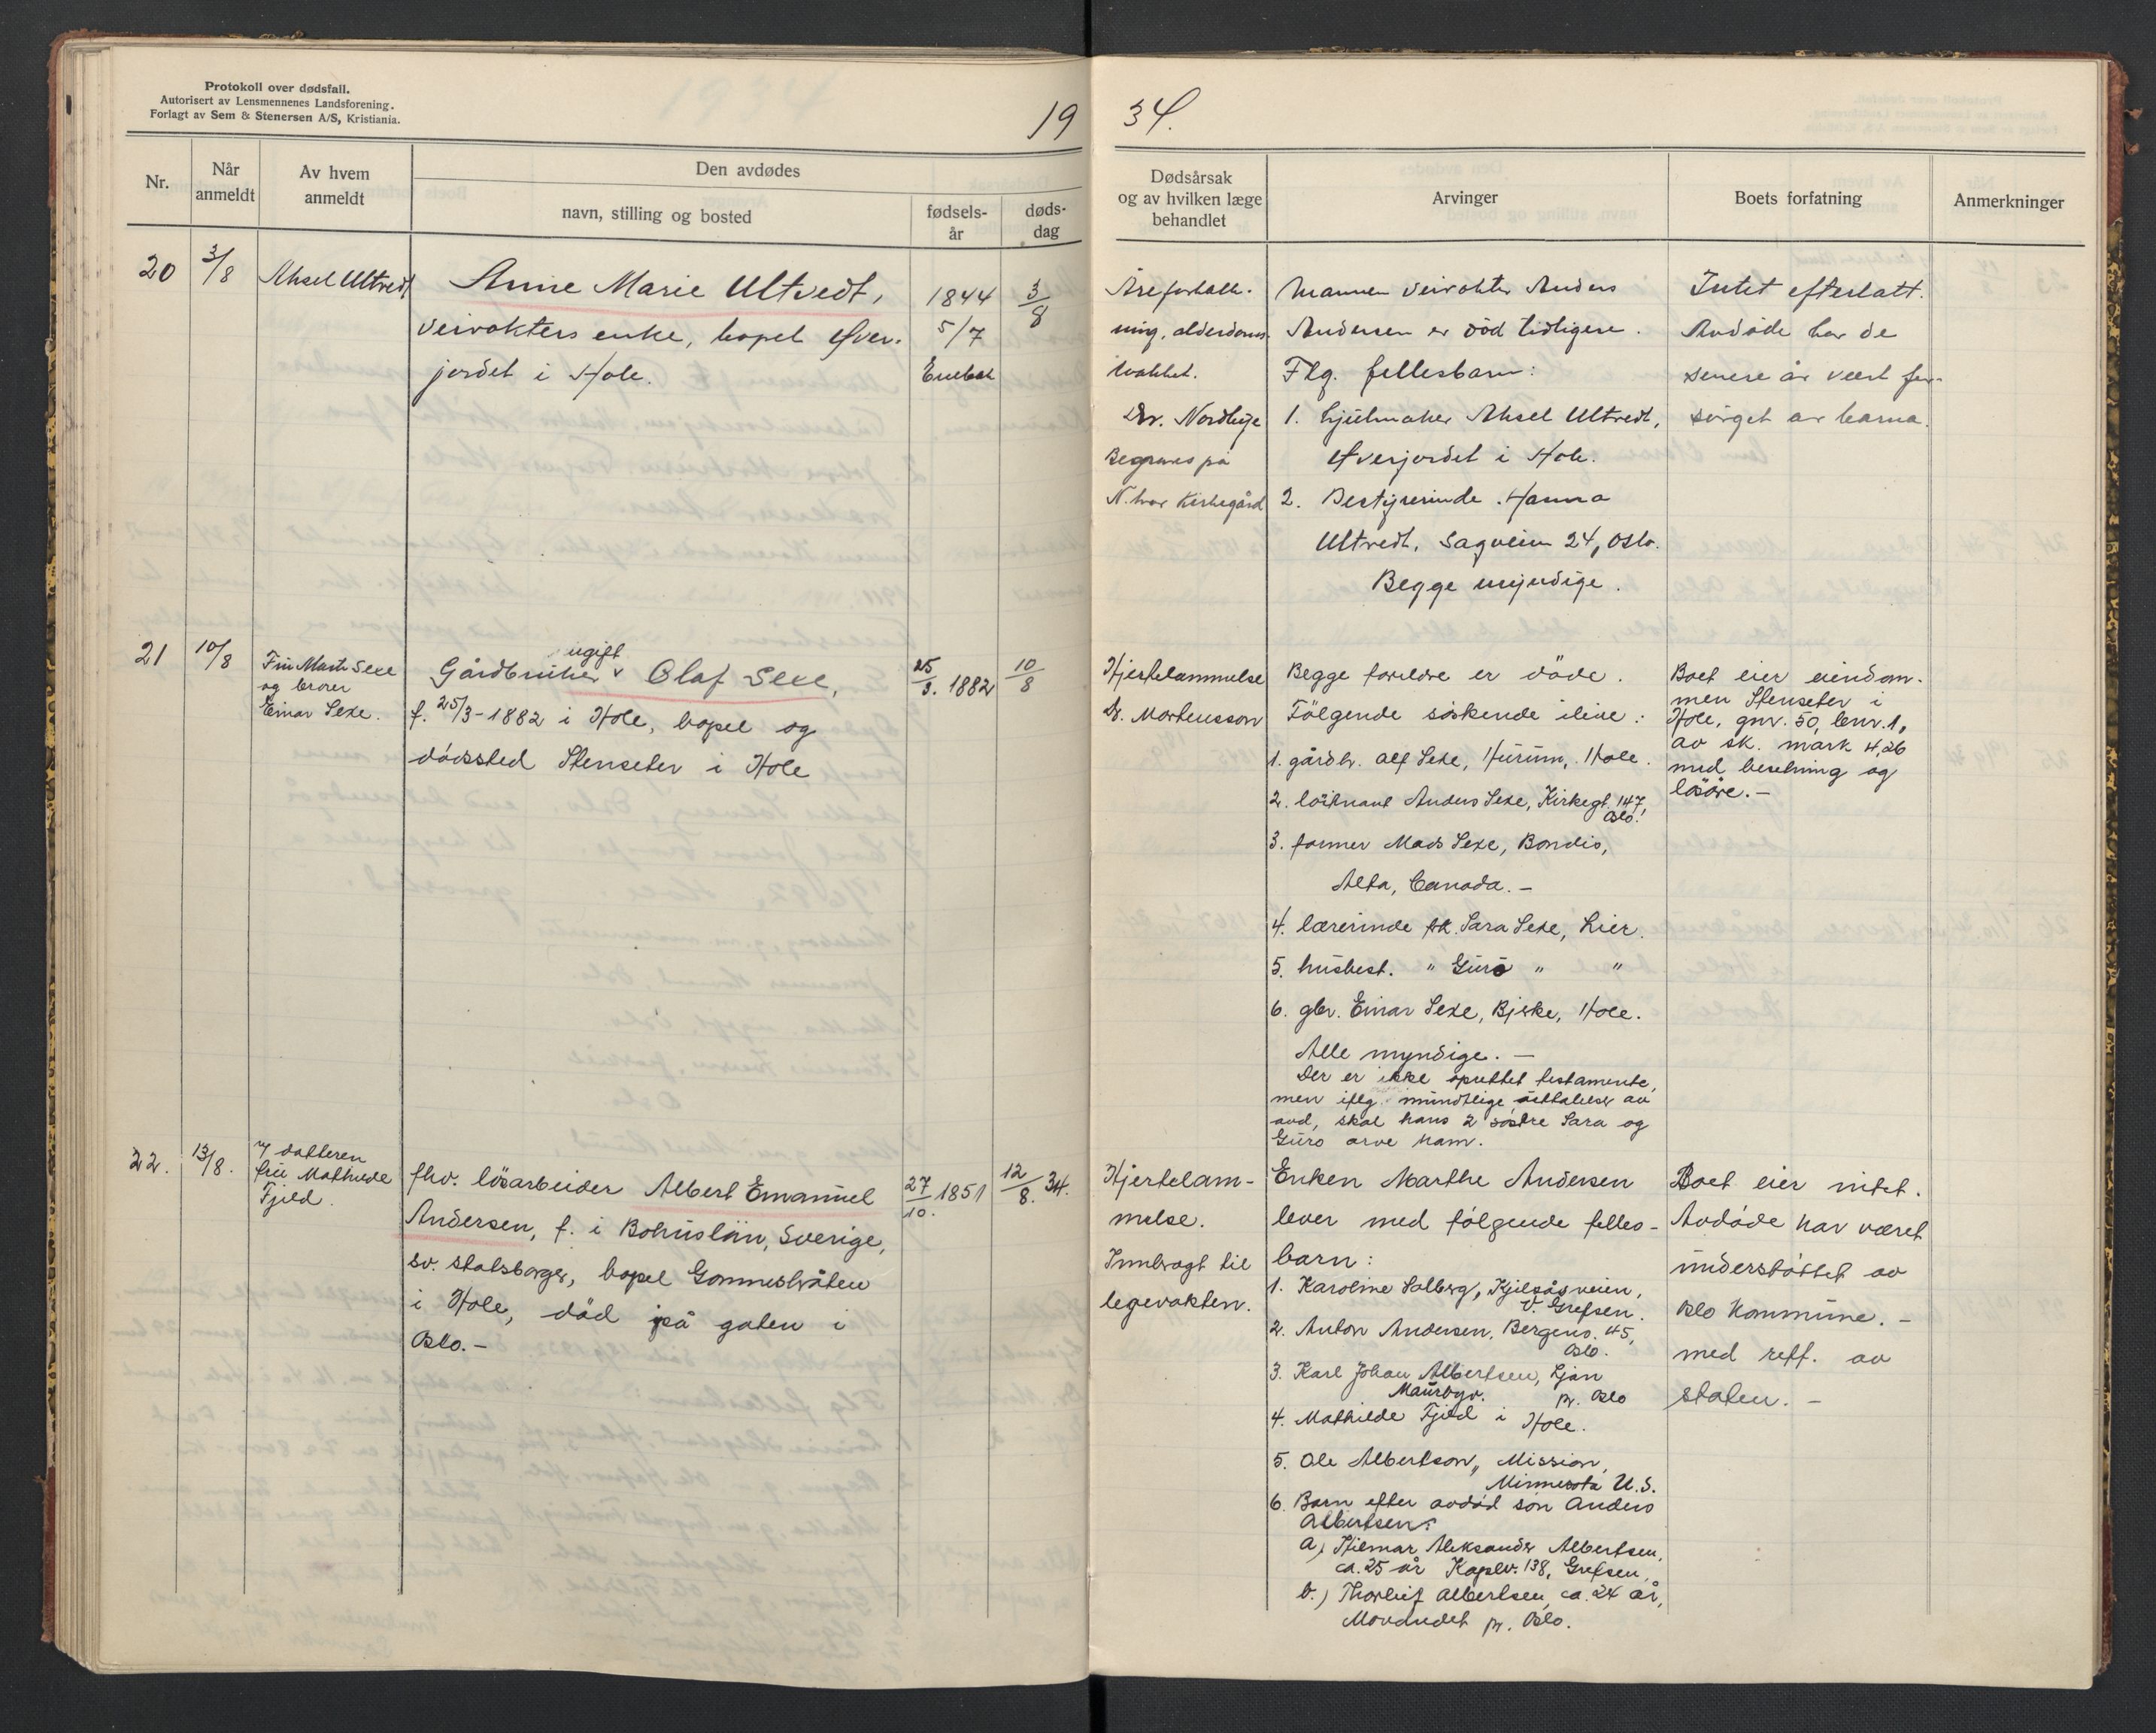 Protokoll over dødsfall.
Autorisert av Lensmennenes Landsforening.
Forlagt av Sem & Stenersen A/S, Kristiania.
19
34.
Nr.
Når
anmeldt
Av hvem
anmeldt
Den avdødes
navn, stilling og bosted
fødsels-
år
døds-
dag
Dødsårsak
og av hvilken læge
behandlet
Arvinger
Boets forfatning
Anmerkninger
20
3/8
Aksel Ultvedt
Anne Marie Ultvedt,
veivokters enke, bopel Øver-
jordet i Hole.
1844
5/7
Enebak
3/8
Åreforkalk-
ning, alderdoms-
svakhet.
Dr. Nordhye
Begraves på
N. kirkegård
Mannen veivokter Anders
Andersen er død tidligere.
Flg. fellesbarn:
1. hjulmaker Aksel Ultvedt,
Øverjordet i Hole.
2. Bestyrerinde Hanna
Ultvedt, Sagveien 24, Oslo.
Begge myndige.
Intet efterlatt.
Avdøde har de
senere år vært for-
sørget av barna.
21
10/8
Fru Marta Sexe
og broren
Einar Sexe.
ugift
Gårdbruker v Olaf Sexe,
f. 25/3-1882 i Hole, bopel og
dødssted Stenseter i Hole
25/3. 1882
10/8
Hjertelammelse
Dr. Mortensson
Begge foreldre er døde.
Følgende søskende ilive:
1. gårdbr. Alf Sexe, Hurum, Hole.
2. løitnant Anders Sexe, Kirkegt. 147,
Oslo.
3. farmer Mads Sexe, Bondis,
Alta, Canada. -
4. lærerinde frk. Sara Sexe, Lier.
5. husbest. " Guro " "
6. gbr. Einar Sexe, Bjerke, Hole.
Alle myndige. -
Der er ikke oprettet testamente,
men iflg. mundtlige uttalelser av
avd, skal hans 2 søstre Sara og
Guro arve ham.
Boet eier eiendom-
men Stenseter i
Hole, gnr. 50, bnr. 1,
av sk. mark 4,26
med besetning og
løsøre. -
22.
13/8.
v/ datteren
fru Mathilde
Fjeld.
fhv. løsarbeider Albert Emanuel
Andersen, f. i Bohuslän, Sverige,
sv. statsborger, bopel Gommesbråten
i Hole, død på gaten i
Oslo. -
27/10. 1851
12/8. 34.
Hjertelam-
melse.
Innbragt til
legevakten.
Enken Marthe Andersen
lever med følgende felles-
barn:
1. Karoline Solberg, Kjelsåsveien,
V. Grefsen.
2. Anton Andersen, Bergens. 45,
Oslo.
3. Karl Johan Albertsen, Ljan
Maurbyv. pr. Oslo
4. Mathilde Fjeld i Hole.
5. Ole Albertson, Mission,
Minnesota U.S.
6. Barn efter avdød søn Anders
Albertsen:
a) Hilmar Aleksander Albertsen,
ca. 25 år Kapelv. 138, Grefsen,
b.) Thorleif Albertsen, ca. 24 år,
pr. Oslo.
Boet eier intet.
Avdøde har været
understøttet av
Oslo kommune. -
med reff. av
staten. -